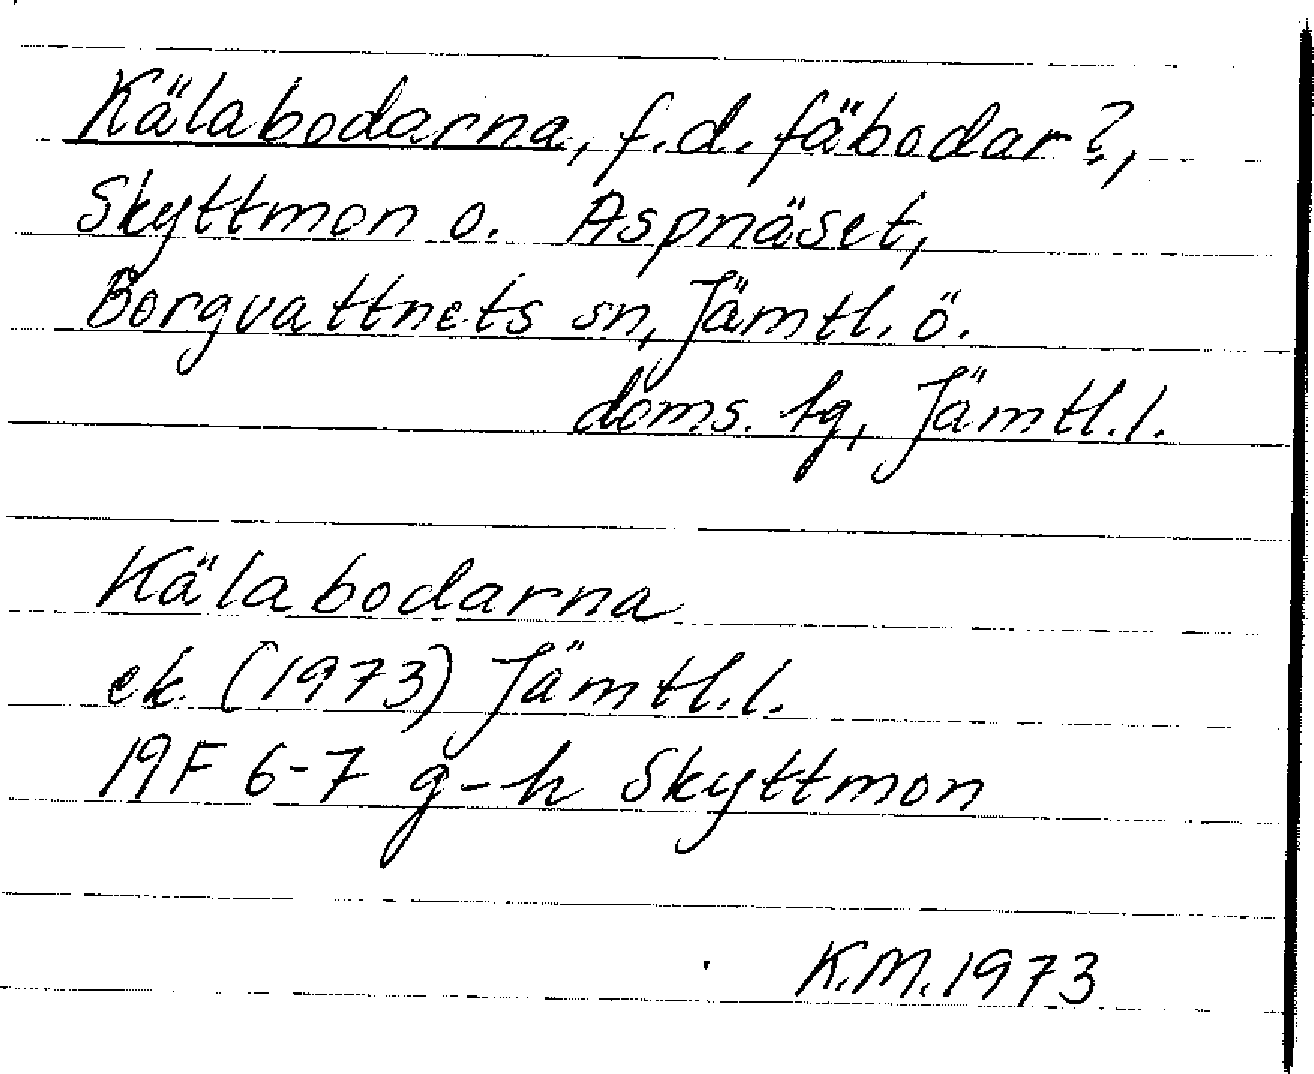 Kälabodarna, f.d. fäbodar?,
Skyttmon o. Aspnäset,
Borgvattnets sn, Jämtl. ö.
doms. tg, Jämtl.l.
Kälabodarna
ek. (1973) Jämtl.l.
19F 6-7 g-h Skyttmon
K.M. 1973